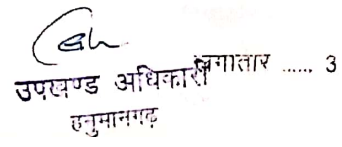 उपखण्ड अधिकारी लगातार ...... 3
हनुमानगढ़